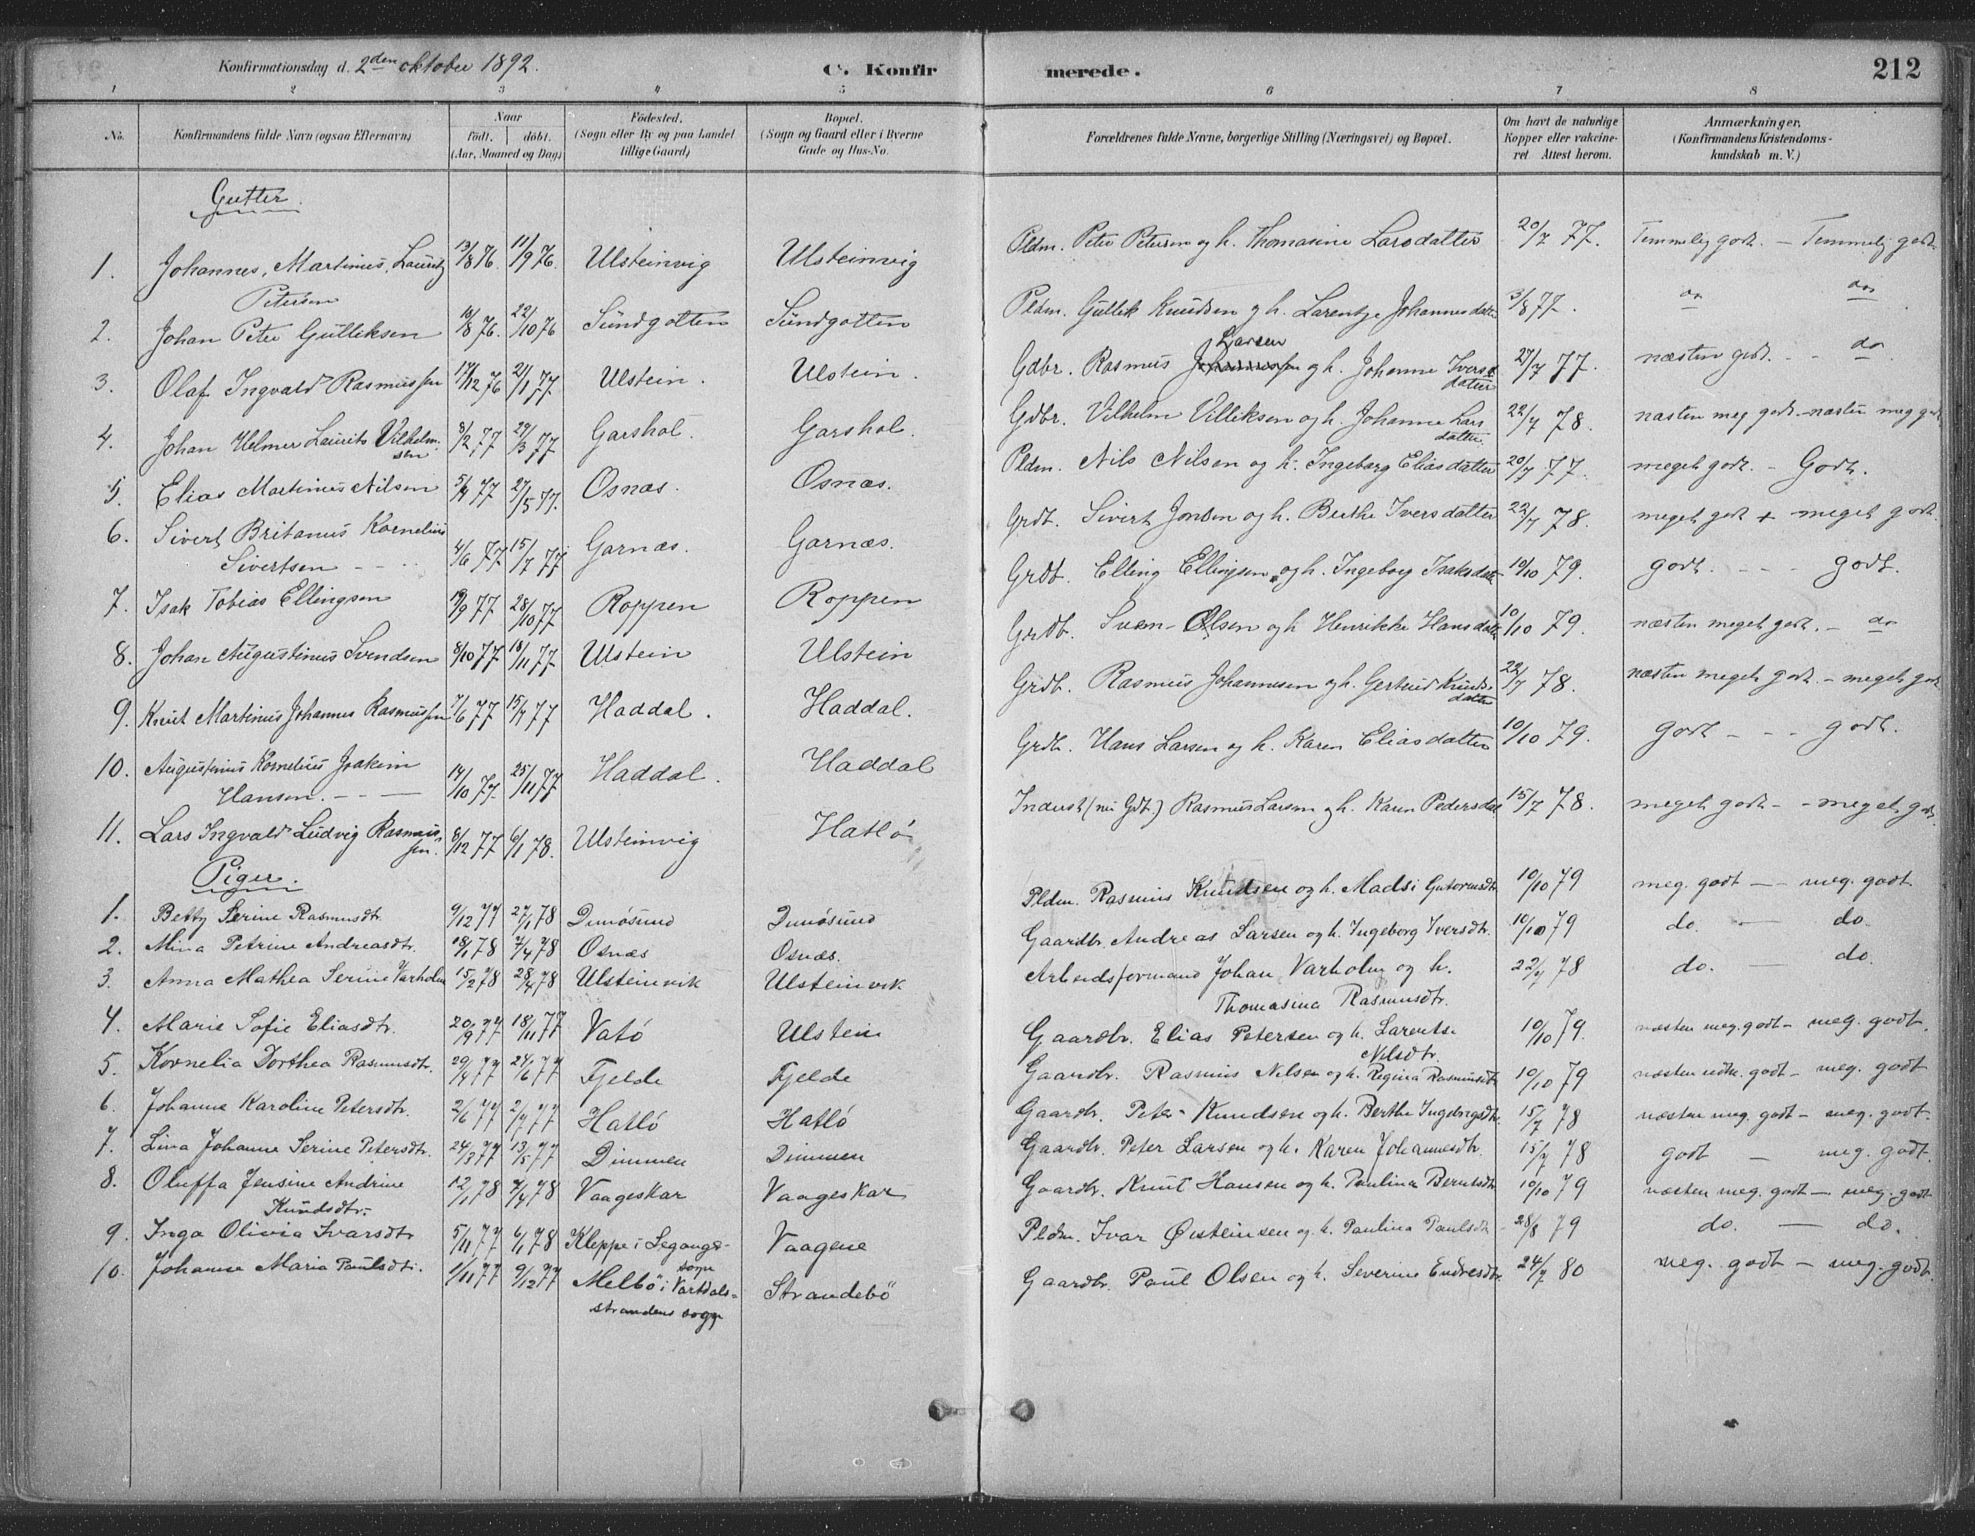 Konfirmationsdag d. 2den oktober 1892. C. Konfirmerede. 212
1 2 3 4 5 6 7 8
No. Konfirmandens fulde Navn (ogsaa Efternavn) Naar født. døbt. (Aar, Maaned og Dag) Fødested. (Sogn eller By og paa Landet tillige Gaard) Bopæl. (Sogn og Gaard eller i Byerne Gade og Hus-No. Forældrenes fulde Navne, borgerlige Stilling (Næringsvei) og Bopæl. Om havt de naturlige Kopper eller vakcineret Attest herom. Anmærkninger, (Konfirmandens Kristendomskundskab m. V.)
Gutter.
1. Johannes, Martinus, Lauritz Petersen 13/8 76. 11/9 76. Ulsteinvig Ulsteinvig Pldm. Peter Petersen og h. Thomasine Larsdatter 20/7 77. Temmelig godt. - Temmelig godt.
2. Johan Peter Gulliksen 10/8 76. 22/10 76 Sundgotten Sundgotten Pldm. Gullik Knudsen og h. Larentze Johannesdatter 3/8 77. do do
3. Olaf Ingvald Rasmussen 17/12 76 21/1 77. Ulstein. Ulstein. Gdbr. Rasmus Larsen og h. Johanne Iversdatter 27/7 77. næsten godt. - - do
4. Johan Helmer Laurits Vilhelmsen 3/2 77 29/3 77 Garshol. Garshol. Gdbr. Vilhelm Villiksen og h. Johanne Larsdatter. 22/7 78. næsten meg godt. - næsten meg godt
5. Elias Martinus Nilsen 5/4 77 27/5 77. Osnæs. Osnæs. Pldm. Nils Nilsen og h. Ingeborg Eliasdatter 20/7 77. meget godt. - Godt.
6. Sivert Britanus Kornelius Sivertsen - - 4/6 77 15/7 77 Garnæs. Garnæs. Grdb. Sivert Jonsen og h. Berthe Iversdatter 22/7 78. meget godt + meget godt.
7. Isak Tobias Ellingsen 19/9 77 28/10 77 Roppen Roppen Grdb. Elling Ellingsen og h. Ingeborg Isaksdatter 10/10 79. godt. - - - godt.
8. Johan Augustinus Svendsen 8/10 77 18/11 77. Ulstein Ulstein Grdb. Sven- Olsen og h Henrikke Hansdatter 10/10 79. næsten meget godt. - do
9. Knut Martinus Johannes Rasmussen 7/6 77 15/7 77 Haddal. Haddal. Grdb. Rasmus Johannesen og h. Gertrud Knudsdatter 22/7 78. næsten meget godt. - meget godt
10. Augustinus Kornelius Joakim Hansen. - - - 14/10 77. 25/11 77 Haddal. Haddal Grdb. Hans Larsen og h. Karen Eliasdatter 10/10 79. godt - - - godt.
11. Lars Ingvald Ludvig Rasmussen. 8/12 77 6/1 78. Ulsteinvig Hatlö Inderst (nu Gdb.) Rasmus Larsen og h. Karen Pedersdat 15/7 78. meget godt - - meget godt.
Piger.
1. Betty Serine Rasmusdtr. 9/12 77 27/1 78 Dimösund Dimösund Pldm. Rasmus Knudsen og h. Madsi Gutormsdtr 10/10 79 meg. godt - - meg. godt
2. Mina Petrine Andreasdtr. 18/1 78 7/4 78 Osnæs Osnæs. Gaardbr. Andreas Larsen og h. Ingeborg Iversdtr. 10/10 79 do. - do.
3. Anna Mathea Serine Varholm 15/2 78 28/4 78 Ulsteinvik Ulsteinvik Arbeidsformand Johan Varholm og h. Thomasina Rasmusdtr. 22/7 78 do. - do.
4. Marie Sofie Eliasdtr. 20/9 77 18/11 77 Vatö Ulstein Gaardbr. Elias Petersen og h. Larentse Nilsdtr. 10/10 79. næsten meg. godt - meg. godt.
5. Kornelia Dorthea Rasmusdtr. 29/4 77 24/6 77 Fjelde Fjelde Gaardbr. Rasmus Nilsen og h. Regina Rasmusdtr 10/10 79 næsten udm. godt - meg. godt
6. Johanne Karoline Petersdtr. 2/6 77 2/7 77 Hatlö Hatlö Gaardbr. Peter Knudsen og h. Berthe Ingebrigtsdtr. 15/7 78 næsten meg. godt - meg. godt.
7. Lina Johanne Serine Petersdtr. 24/3 77 13/5 77 Dimmen Dimmen Gaardbr. Peter Larsen og h. Karen Johannesdtr. 15/7 78 godt - meg. godt.
8. Oluffa Jensine Andrine Knudsdtr. 12/1 78 7/4 78 Vaageskar Vaageskar Gaardbr. Knut Hansen og h. Paulina Berntsdtr 10/10 79 næsten meg. godt - meg. godt
9. Inga Olivia Ivarsdtr 5/11 77 6/1 78 Kleppe i Leganger sogn Vaagene Pldm. Ivar Øisteinsen og h. Paulina Paulsdtr 28/8 79 do. - do.
10. Johanne Maria Paulsdtr. 1/11 77 9/12 77 Melbö i Vartdalsstrandens sogn Strandebö Gaardbr. Paul Olsen og h. Severine Endresdtr. 24/7 80 meg. godt - meg. godt.